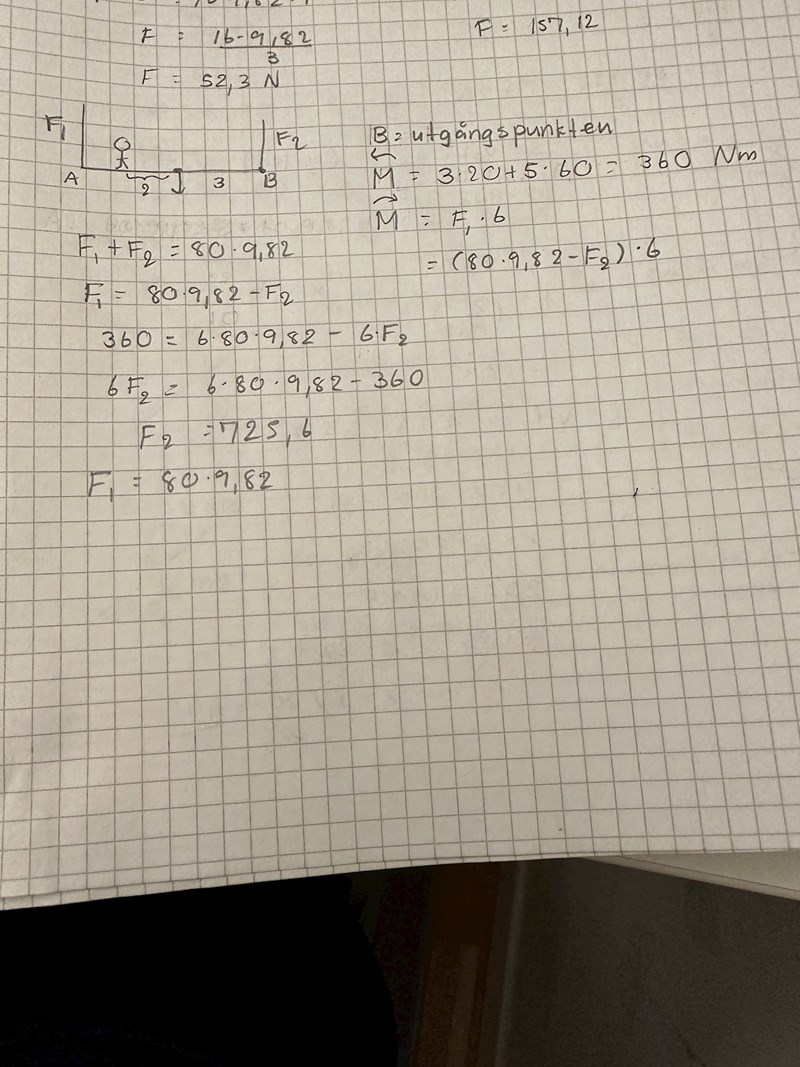 F = 16-9,82
3
F = 157,12
F = 52,3 N
F1
F2
A
2
3
B
B = utgångspunkten
M = 3·20+5·60 = 360 Nm
M = F1·6
= (80·9,82-F2)·6
F1+F2 = 80·9,82
F1 = 80·9,82-F2
360 = 6·80·9,82 - 6·F2
6F2 = 6·80·9,82-360
F2 = 725,6
F1 = 80·9,82